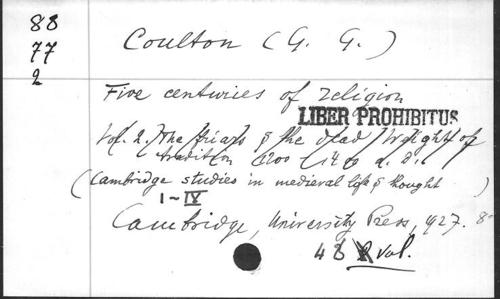 88
77
2
Coulton (G. G.)
Five centuries of religion
LIBER PROHIBITUS
Vol. 2. The friars & the dead weight of
tradition 1200 1400 a. d.
(Cambridge studies in medieval life & thought)
I-IV
Cambridge, University Press, 1927. 8-
48 vol.